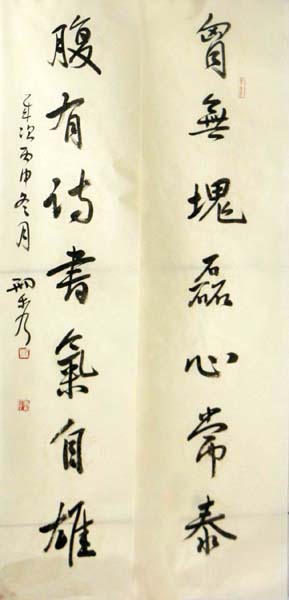 胷無塊磊心常泰
腹有诗書氣自雄
年次丙申冬月